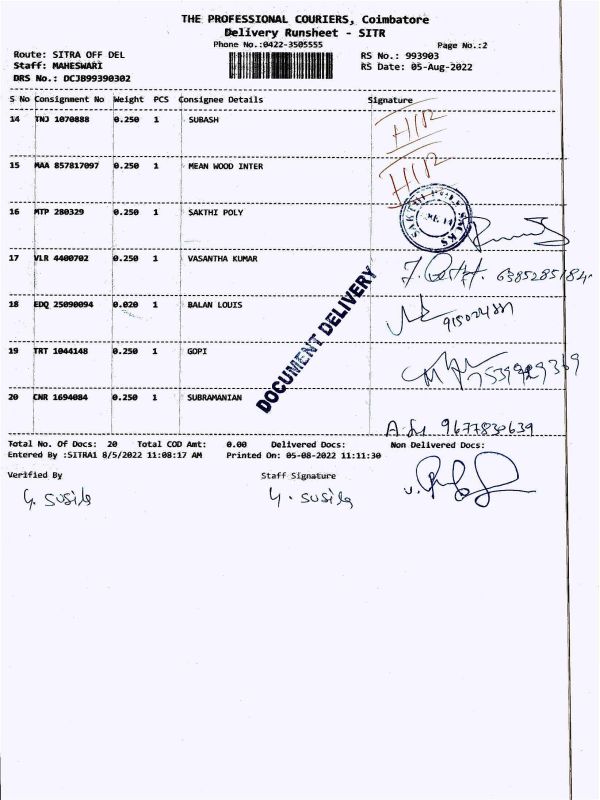 THE PROFESSIONAL COURIERS, Coimbatore
Delivery Runsheet - SITR
Phone No.:0422-3505555 Page No.:2
Route: SITRA OFF DEL RS No.: 993903
Staff: MAHESWARI RS Date: 05-Aug-2022
DRS No.: DCJB99390302
S No Consignment No Weight PCS Consignee Details Signature
14 TNJ 1070888 0.250 1 SUBASH
15 MAA 857817097 0.250 1 MEAN WOOD INTER
16 MTP 280329 0.250 1 SAKTHI POLY
17 VLR 4400702 0.250 1 VASANTHA KUMAR
18 EDQ 25090094 0.020 1 BALAN LOUIS
19 TRT 1044148 0.250 1 GOPI
DOCUMENT DELIVERY
20 CNR 1694084 0.250 1 SUBRAMANIAN
9677830639
Total No. Of Docs: 20 Total COD Amt: 0.00 Delivered Docs: Non Delivered Docs:
Entered By :SITRA1 8/5/2022 11:08:17 AM Printed On: 05-08-2022 11:11:30
Verified By Staff Signature